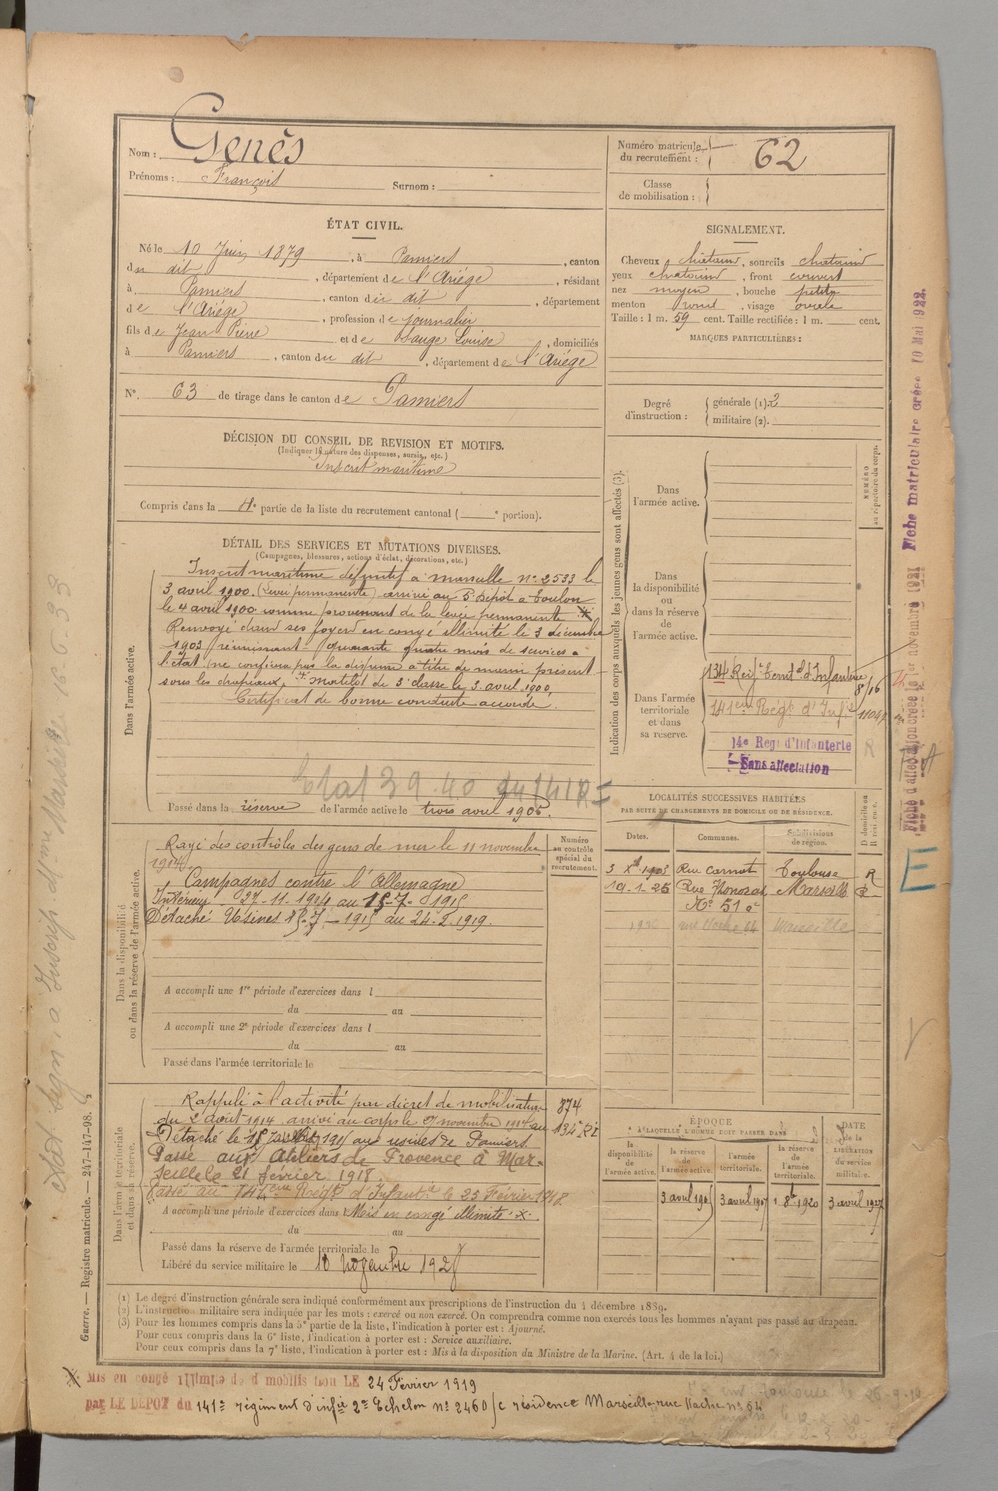 Nom : Genès
Prénoms : François Surnom :
Numéro matricule du recrutement : 62
Classe de mobilisation :
ÉTAT CIVIL.
Né le 10 Juin 1879, à Pamiers, canton
du dit, département de l'Ariège, résidant
à Pamiers, canton du dit, département
de l'Ariège, profession de journalier
fils de Jean Pierre et de Sauge Louise, domiciliés
à Pamiers, canton du dit, département de l'Ariège
N° 63 de tirage dans le canton de Pamiers
SIGNALEMENT.
Cheveux châtains, sourcils châtains
yeux châtains, front couvert
nez moyen, bouche petite
menton rond, visage ovale
Taille : 1 m. 59 cent. Taille rectifiée : 1 m. cent.
MARQUES PARTICULIÈRES :
Degré d'instruction : générale (1). 2
militaire (2).
DÉCISION DU CONSEIL DE REVISION ET MOTIFS.
(Indiquer la nature des dispenses, sursis, etc.)
Inscrit maritime
Compris dans la 4e partie de la liste du recrutement cantonal ( e portion).
DÉTAIL DES SERVICES ET MUTATIONS DIVERSES.
(Campagnes, blessures, actions d'éclat, décorations, etc.)
Dans l'armée active.
Inscrit maritime définitif à Marseille n° 2533 le
3 avril 1900. (Levée permanente) arrivé au 5e dépôt à Toulon
le 4 avril 1900 comme provenant de la levée permanente
Renvoyé dans ses foyers en congé illimité le 3 décembre
1903 réunissant quarante quatre mois de services à
l'état, ne confirme pas la dispense à titre de marin présent
sous les drapeaux. Matelot de 3e classe le 3 avril 1900.
Certificat de bonne conduite accordé.
Etat 39.40 du 141 RI
Passé dans la réserve de l'armée active le trois avril 1905.
Indication des corps auxquels les jeunes gens sont affectés (3).
NUMÉRO au répertoire du corps.
Dans l'armée active.
Dans la disponibilité ou dans la réserve de l'armée active.
Dans l'armée territoriale et dans sa réserve.
134 Regt Territ d'Infanterie
8/16
141eme Regt d'Infie 11049
14e Regt d'Infanterie
Sans affectation
R
Dans la disponibilité ou dans la réserve de l'armée active.
Numéro au contrôle spécial du recrutement.
Rayé des contrôles des gens de mer le 11 novembre
1914
Campagnes contre l'Allemagne
Intérieur 27-11-1914 au 15-7-1915
Détaché Usines 15-7-1915 au 24-2-1919.
A accompli une 1re période d'exercices dans l
du au
A accompli une 2e période d'exercices dans l
du au
Passé dans l'armée territoriale le
LOCALITÉS SUCCESSIVES HABITÉES
PAR SUITE DE CHANGEMENTS DE DOMICILE OU DE RÉSIDENCE.
Dates. Communes. Subdivisions de région. D domicile ou R résidence.
3 Xbre 1903 Rue Carnot Toulouse R
19-1-26 Rue Marseille R
N° 51
Marseille
Dans l'armée territoriale et dans sa réserve.
Rappelé à l'activité par décret de mobilisation 874
du 2 août 1914 arrivé au corps le 27 novembre 1914 au 134e RI
Détaché le 15 Juillet 1915 aux usines de Pamiers
Passé aux Ateliers de Provence à Mar-
seille le 21 février 1918.
Passé au 141eme Regt d'Infantie le 25 Février 1918
A accompli une période d'exercices dans Mis en congé illimité .x.
du au
Passé dans la réserve de l'armée territoriale le
Libéré du service militaire le 10 novembre 1928
ÉPOQUE
À LAQUELLE L'HOMME DOIT PASSER DANS
la disponibilité de l'armée active. la réserve de l'armée active. l'armée territoriale. la réserve de l'armée territoriale. DATE de la LIBÉRATION du service militaire.
3 avril 1905 3 avril 1907 1 8bre 1920 3 avril 1927
(1) Le degré d'instruction générale sera indiqué conformément aux prescriptions de l'instruction du 4 décembre 1889.
(2) L'instruction militaire sera indiquée par les mots : exercé ou non exercé. On comprendra comme non exercés tous les hommes n'ayant pas passé au drapeau.
(3) Pour les hommes compris dans la 5e partie de la liste, l'indication à porter est : Ajourné.
Pour ceux compris dans la 6e liste, l'indication à porter est : Service auxiliaire.
Pour ceux compris dans la 7e liste, l'indication à porter est : Mis à la disposition du Ministre de la Marine. (Art. 4 de la loi.)
Mis en congé illimité de démobilisation LE 24 Février 1919
par LE DEPOT du 141e régiment d'infie 2e Echelon n° 2460 résidence Marseille rue Hache n° 64
Guerre. — Registre matricule. — 247-147-98.
Fiche matriculaire créée 10 Mai 1922.
Fiche d'affectation créée le 1er novembre 1921
E